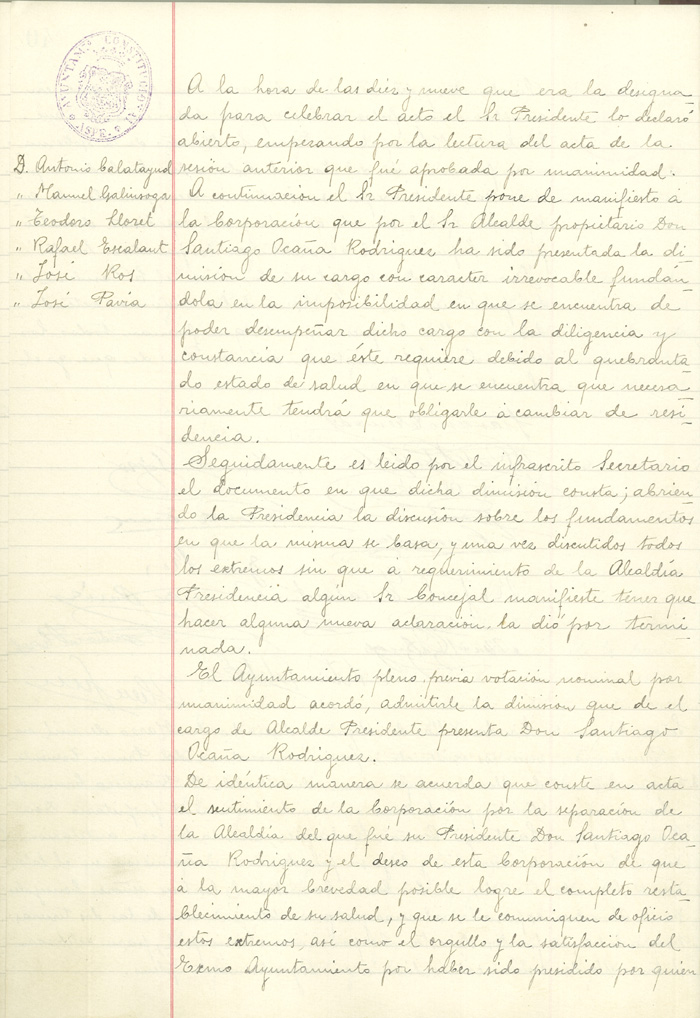 AYUNTAM. CONSTITUCIONAL
D. Antonio Calatayud
" Manuel Galinsoga
" Teodoro Lloret
" Rafael Escalant
" José Ros
" José Pavia
A la hora de las diez y nueve que era la designa-
da para celebrar el acto el Sr Presidente lo declaró
abierto, empezando por la lectura del acta de la
sesión anterior que fué aprobada por unanimidad.
A continuación el Sr Presidente pone de manifiesto á
la Corporación que por el Sr Alcalde propietario Don
Santiago Ocaña Rodriguez ha sido presentada la di-
misión de su cargo con caracter irrevocable fundán-
dola en la imposibilidad en que se encuentra de
poder desempeñar dicho cargo con la diligencia y
constancia que éste requiere debido al quebranta-
do estado de salud en que se encuentra que necesa-
riamente tendrá que obligarle á cambiar de resi-
dencia.
Seguidamente es leido por el infrascrito Secretario
el documento en que dicha dimisión consta; abrien-
do la Presidencia la discusión sobre los fundamentos
en que la misma se basa, y una vez discutidos todos
los extremos sin que á requerimiento de la Alcaldía
Presidencia algún Sr Concejal manifieste tener que
hacer alguna nueva aclaración la dió por termi-
nada.
El Ayuntamiento pleno previa votación nominal por
unanimidad acordó, admitirle la dimisión que de el
cargo de Alcalde Presidente presenta Don Santiago
Ocaña Rodriguez.
De idéntica manera se acuerda que conste en acta
el sentimiento de la Corporación por la separación de
la Alcaldía del que fué su Presidente Don Santiago Oca-
ña Rodriguez y el deseo de esta Corporación de que
á la mayor brevedad posible logre el completo resta-
blecimiento de su salud, y que se le comuniquen de oficio
estos extremos, así como el orgullo y la satisfacción del
Exmo Ayuntamiento por haber sido presidido por quien